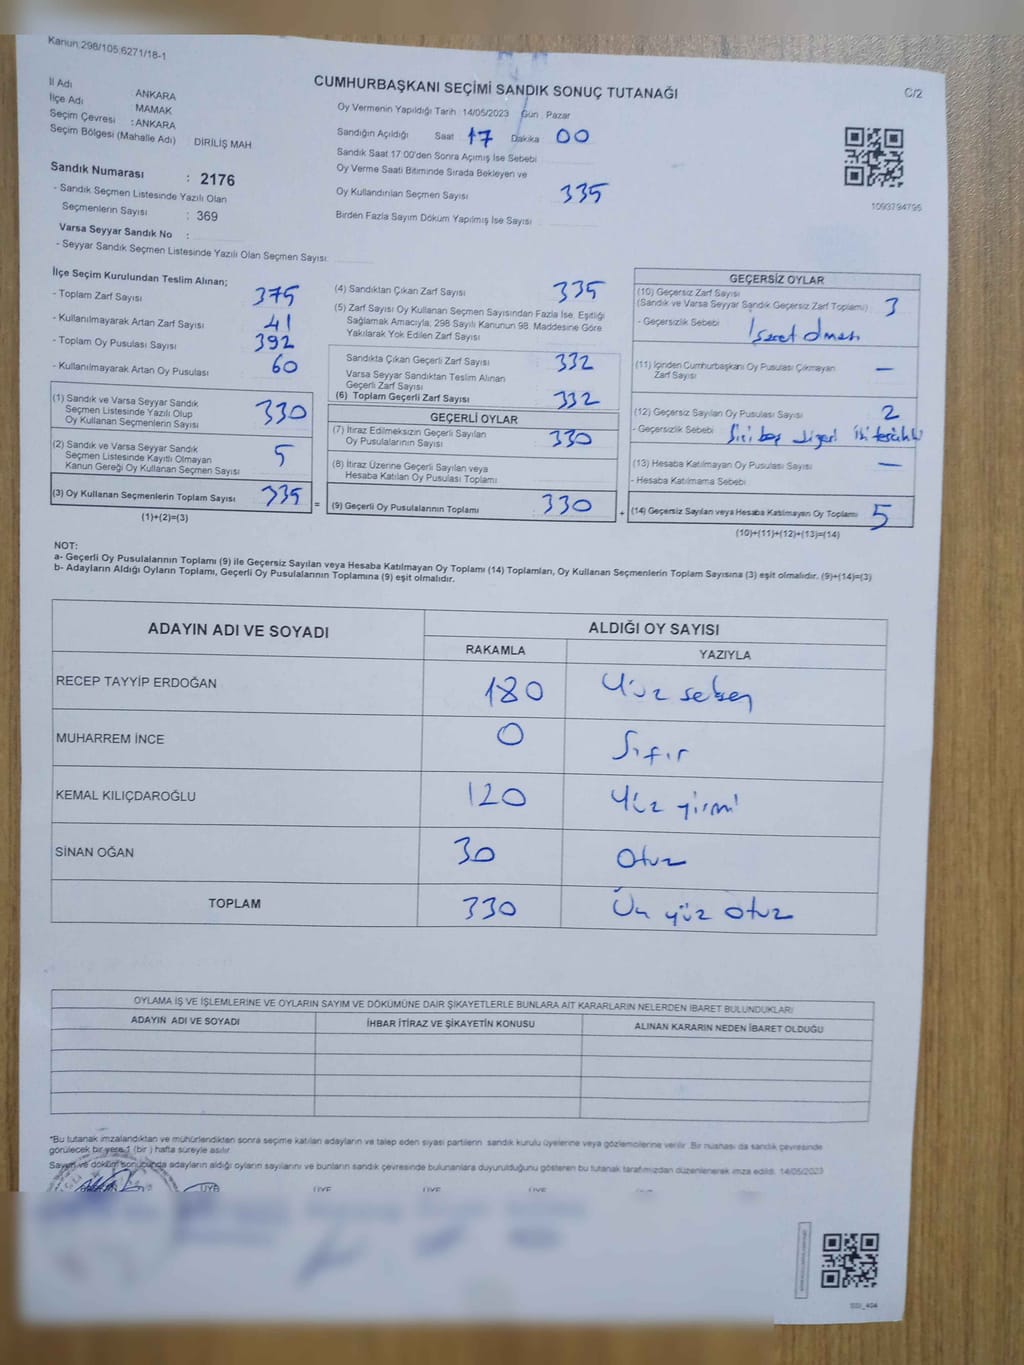 Kanun:298/105;6271/18-1
C/2
CUMHURBAŞKANI SEÇİMİ SANDIK SONUÇ TUTANAĞI
İl Adı ANKARA
İlçe Adı MAMAK
Seçim Çevresi : ANKARA
Seçim Bölgesi (Mahalle Adı) DİRİLİŞ MAH
Sandık Numarası : 2176
- Sandık Seçmen Listesinde Yazılı Olan
Seçmenlerin Sayısı : 369
Varsa Seyyar Sandık No :
- Seyyar Sandık Seçmen Listesinde Yazılı Olan Seçmen Sayısı:
Oy Vermenin Yapıldığı Tarih : 14/05/2023 Gün : Pazar
Sandığın Açıldığı Saat 17 Dakika 00
Sandık Saat 17:00'den Sonra Açımış İse Sebebi
Oy Verme Saati Bitiminde Sırada Bekleyen ve
Oy Kullandırılan Seçmen Sayısı 335
Birden Fazla Sayım Döküm Yapılmış İse Sayısı
1093794795
İlçe Seçim Kurulundan Teslim Alınan;
- Toplam Zarf Sayısı 375
- Kullanılmayarak Artan Zarf Sayısı 41
- Toplam Oy Pusulası Sayısı 392
- Kullanılmayarak Artan Oy Pusulası 60
(1) Sandık ve Varsa Seyyar Sandık
Seçmen Listesinde Yazılı Olup
Oy Kullanan Seçmenlerin Sayısı 330
(2) Sandık ve Varsa Seyyar Sandık
Seçmen Listesinde Kayıtlı Olmayan
Kanun Gereği Oy Kullanan Seçmen Sayısı 5
(3) Oy Kullanan Seçmenlerin Toplam Sayısı 335 =
(1)+(2)=(3)
(4) Sandıktan Çıkan Zarf Sayısı 335
(5) Zarf Sayısı Oy Kullanan Seçmen Sayısından Fazla İse, Eşitliği
Sağlamak Amacıyla, 298 Sayılı Kanunun 98. Maddesine Göre
Yakılarak Yok Edilen Zarf Sayısı
Sandıkta Çıkan Geçerli Zarf Sayısı 332
Varsa Seyyar Sandıktan Teslim Alınan
Geçerli Zarf Sayısı
(6) Toplam Geçerli Zarf Sayısı 332
GEÇERLİ OYLAR
(7) İtiraz Edilmeksizin Geçerli Sayılan
Oy Pusulalarının Sayısı 330
(8) İtiraz Üzerine Geçerli Sayılan veya
Hesaba Katılan Oy Pusulası Toplamı
(9) Geçerli Oy Pusulalarının Toplamı 330 +
GEÇERSİZ OYLAR
(10) Geçersiz Zarf Sayısı
(Sandık ve Varsa Seyyar Sandık Geçersiz Zarf Toplamı) 3
- Geçersizlik Sebebi
(11) İçinden Cumhurbaşkanı Oy Pusulası Çıkmayan
Zarf Sayısı —
(12) Geçersiz Sayılan Oy Pusulası Sayısı 2
- Geçersizlik Sebebi Biri boş diğeri
(13) Hesaba Katılmayan Oy Pusulası Sayısı —
- Hesaba Katılmama Sebebi
(14) Geçersiz Sayılan veya Hesaba Katılmayan Oy Toplamı 5
(10)+(11)+(12)+(13)=(14)
NOT:
a- Geçerli Oy Pusulalarının Toplamı (9) ile Geçersiz Sayılan veya Hesaba Katılmayan Oy Toplamı (14) Toplamları, Oy Kullanan Seçmenlerin Toplam Sayısına (3) eşit olmalıdır. (9)+(14)=(3)
b- Adayların Aldığı Oyların Toplamı, Geçerli Oy Pusulalarının Toplamına (9) eşit olmalıdır.
ADAYIN ADI VE SOYADI ALDIĞI OY SAYISI
RAKAMLA YAZIYLA
RECEP TAYYİP ERDOĞAN 180 Yüz seksen
MUHARREM İNCE 0 Sıfır
KEMAL KILIÇDAROĞLU 120 Yüz yirmi
SİNAN OĞAN 30 Otuz
TOPLAM 330 Üç yüz otuz
OYLAMA İŞ VE İŞLEMLERİNE VE OYLARIN SAYIM VE DÖKÜMÜNE DAİR ŞİKAYETLERLE BUNLARA AİT KARARLARIN NELERDEN İBARET BULUNDUKLARI
ADAYIN ADI VE SOYADI İHBAR İTİRAZ VE ŞİKAYETİN KONUSU ALINAN KARARIN NEDEN İBARET OLDUĞU
*Bu tutanak imzalandıktan ve mühürlendikten sonra seçime katılan adayların ve talep eden siyasi partilerin sandık kurulu üyelerine veya gözlemcilerine verilir. Bir nushası da sandık çevresinde
görülecek bir yere 1 (bir) hafta süreyle asılır.
Sayım ve döküm sonucunda adayların aldığı oyların sayılarını ve bunların sandık çevresinde bulunanlara duyurulduğunu gösteren bu tutanak tarafımızdan düzenlenerek imza edildi. 14/05/2023
ÜYE ÜYE ÜYE ÜYE